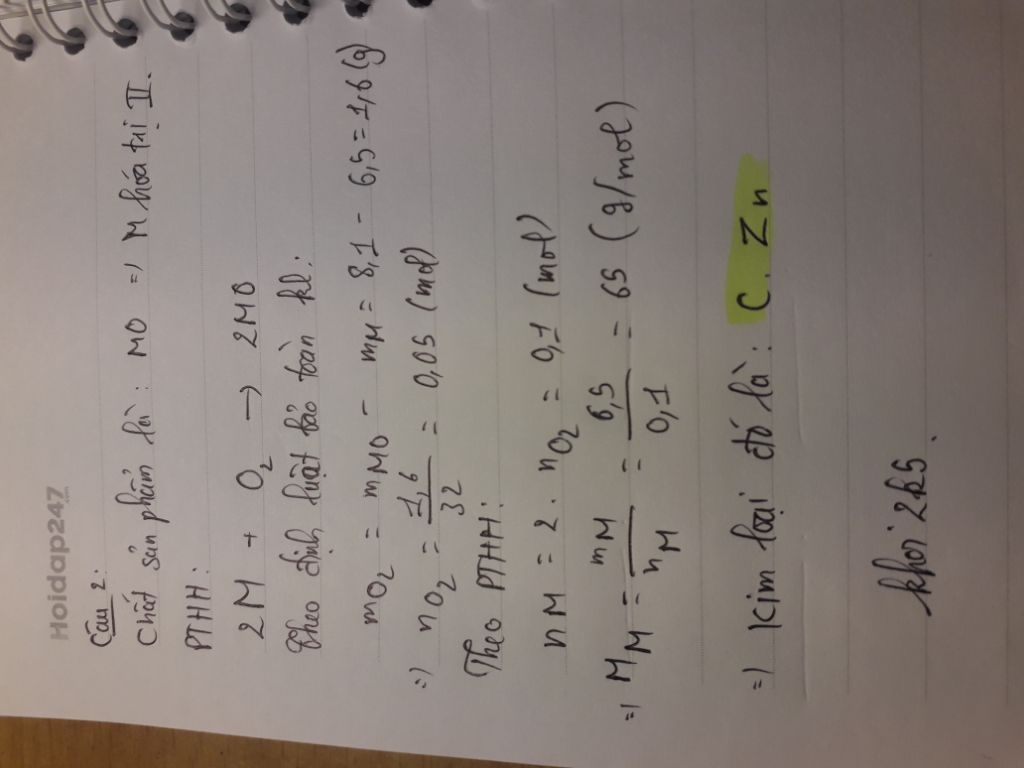 Hoidap247.com
Câu 2:
Chất sản phẩm là: MO => M hóa trị II.
PTHH:
2M + O₂ → 2MO
Theo định luật bảo toàn kl:
mO₂ = mMO - mM = 8,1 - 6,5 = 1,6 (g)
=> nO₂ = 1,6/32 = 0,05 (mol)
Theo PTHH:
nM = 2. nO₂ = 0,1 (mol)
=> MM = mM/nM = 6,5/0,1 = 65 (g/mol)
=> Kim loại đó là: C. Zn
khoi2k5.